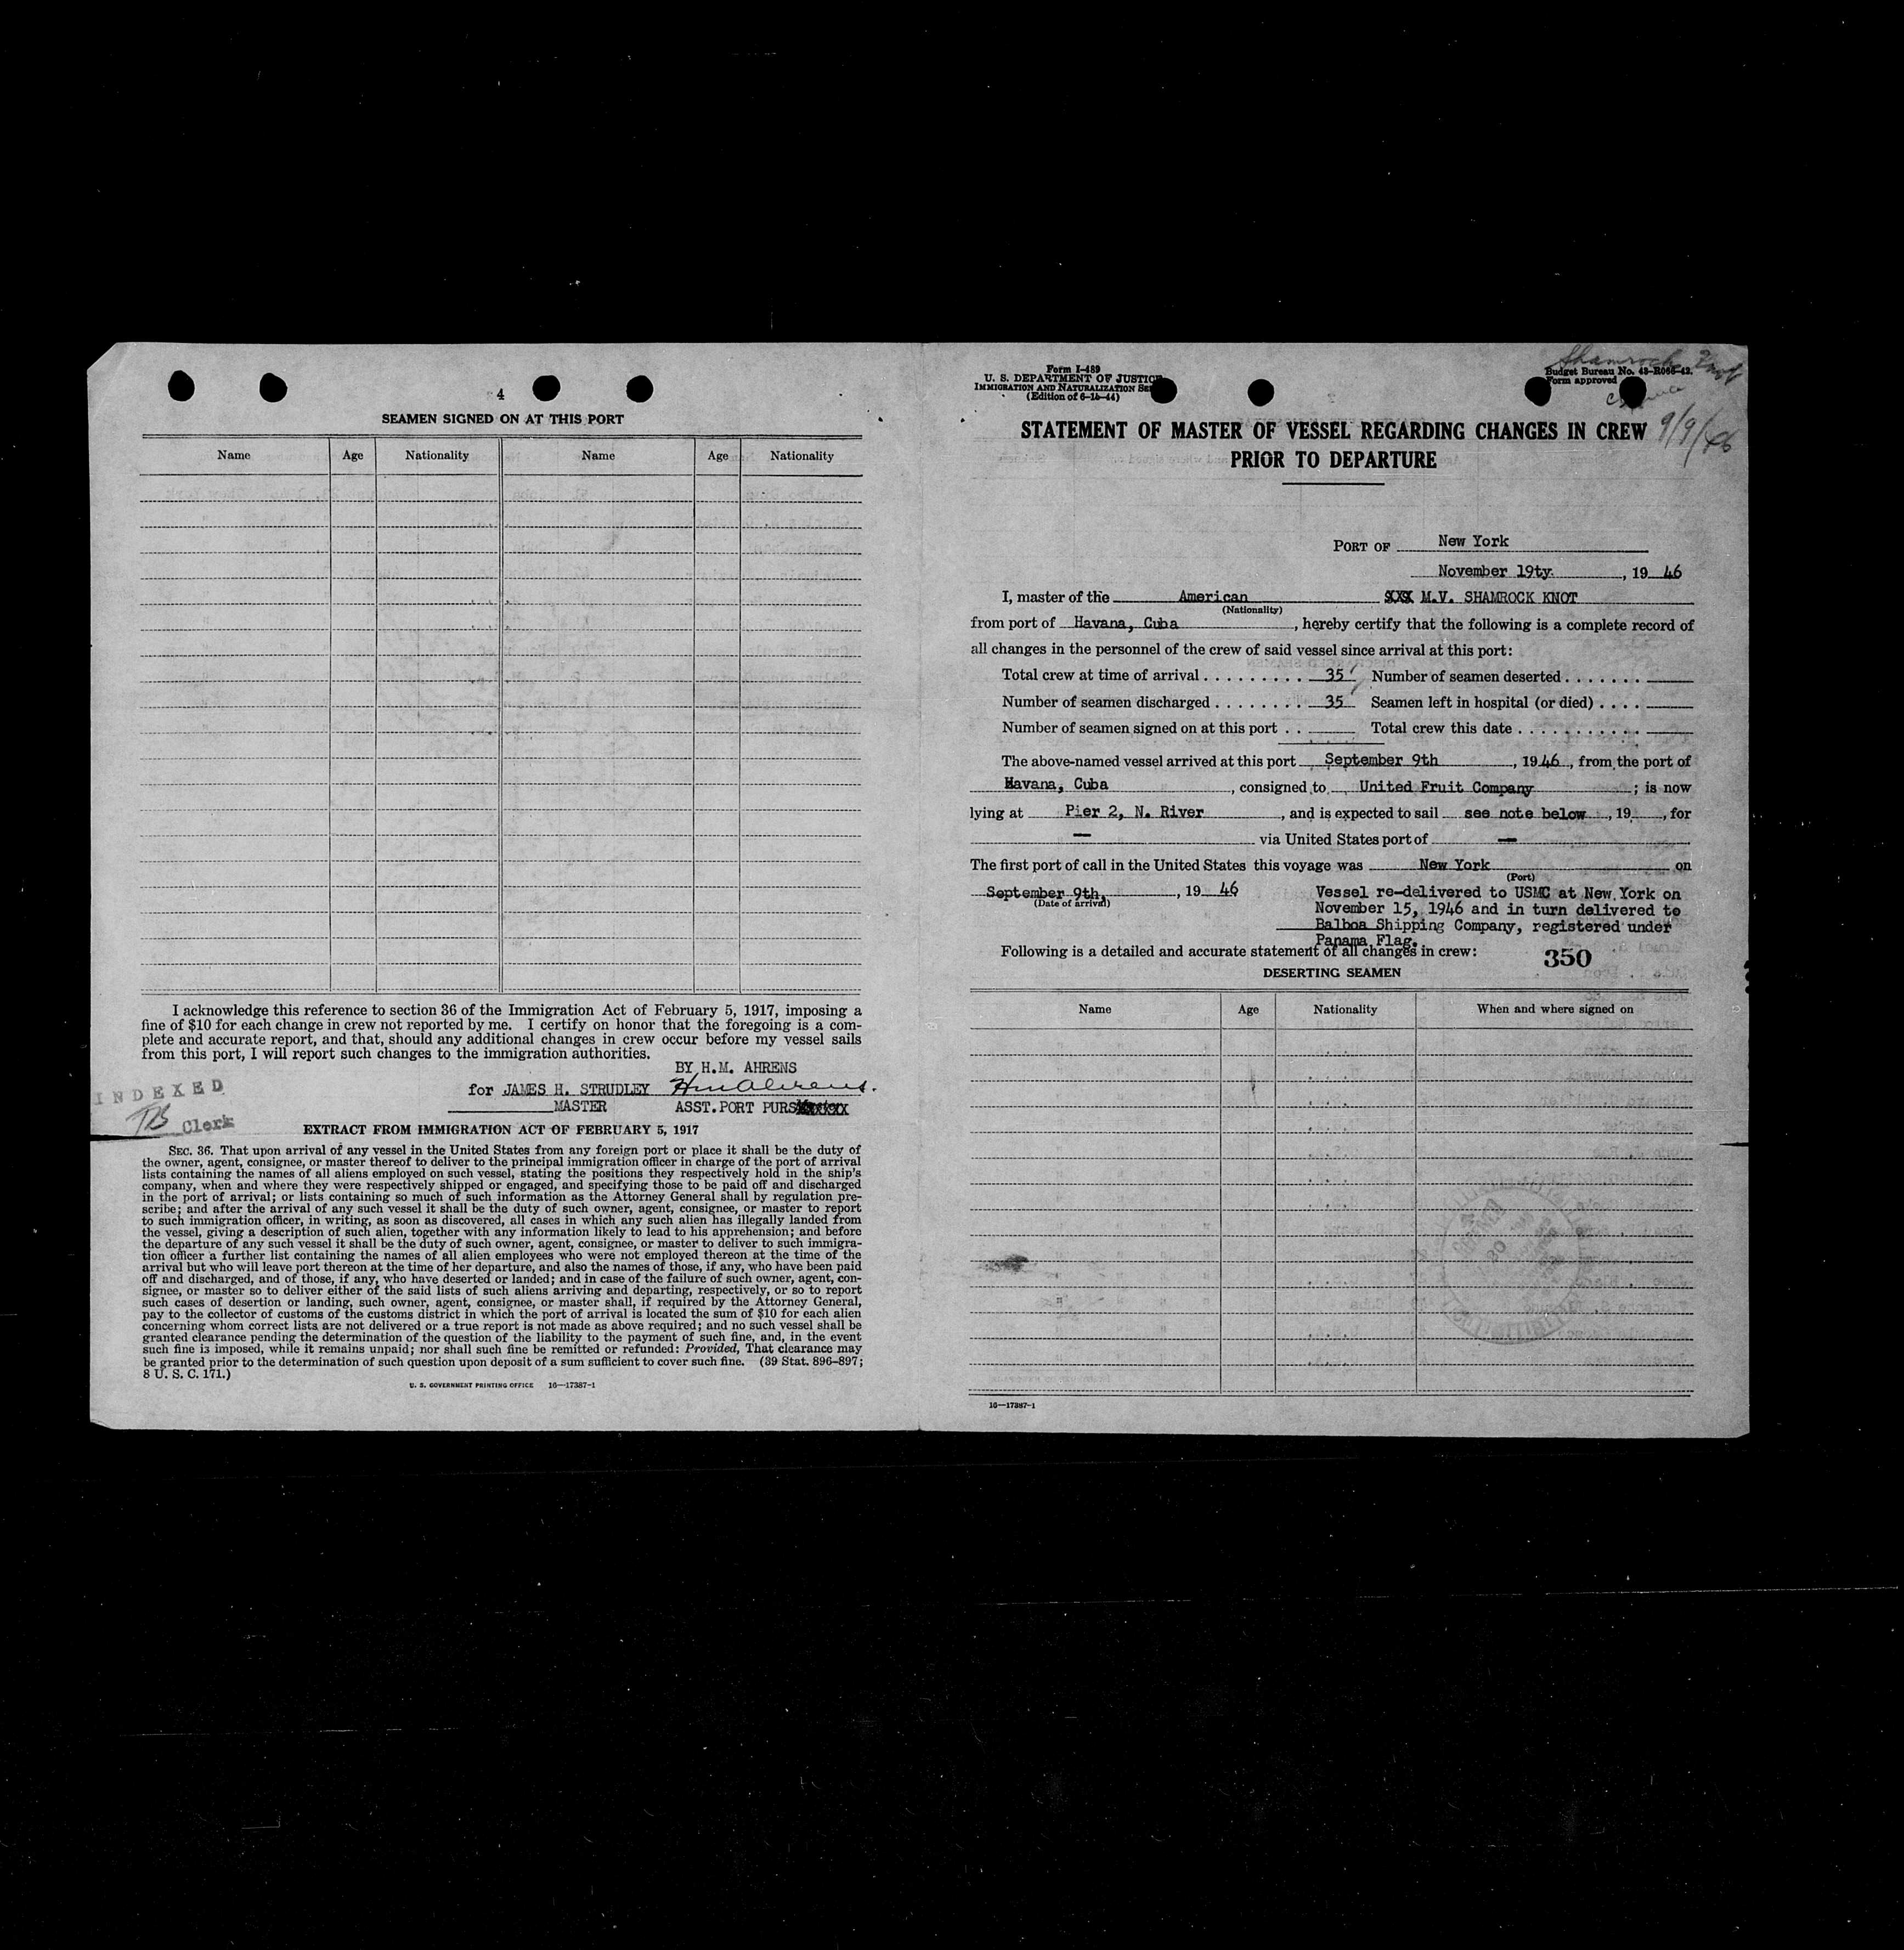 4
SEAMEN SIGNED ON AT THIS PORT
Name Age Nationality Name Age Nationality
I acknowledge this reference to section 36 of the Immigration Act of February 5, 1917, imposing a
fine of $10 for each change in crew not reported by me. I certify on honor that the foregoing is a com-
plete and accurate report, and that, should any additional changes in crew occur before my vessel sails
from this port, I will report such changes to the immigration authorities.
BY H.M. AHRENS
for JAMES H. STRUDLEY HM Ahrens.
MASTER ASST. PORT PURS
INDEXED
Clerk
EXTRACT FROM IMMIGRATION ACT OF FEBRUARY 5, 1917
SEC. 36. That upon arrival of any vessel in the United States from any foreign port or place it shall be the duty of
the owner, agent, consignee, or master thereof to deliver to the principal immigration officer in charge of the port of arrival
lists containing the names of all aliens employed on such vessel, stating the positions they respectively hold in the ship's
company, when and where they were respectively shipped or engaged, and specifying those to be paid off and discharged
in the port of arrival; or lists containing so much of such information as the Attorney General shall by regulation pre-
scribe; and after the arrival of any such vessel it shall be the duty of such owner, agent, consignee, or master to report
to such immigration officer, in writing, as soon as discovered, all cases in which any such alien has illegally landed from
the vessel, giving a description of such alien, together with any information likely to lead to his apprehension; and before
the departure of any such vessel it shall be the duty of such owner, agent, consignee, or master to deliver to such immigra-
tion officer a further list containing the names of all alien employees who were not employed thereon at the time of the
arrival but who will leave port thereon at the time of her departure, and also the names of those, if any, who have been paid
off and discharged, and of those, if any, who have deserted or landed; and in case of the failure of such owner, agent, con-
signee, or master so to deliver either of the said lists of such aliens arriving and departing, respectively, or so to report
such cases of desertion or landing, such owner, agent, consignee, or master shall, if required by the Attorney General,
pay to the collector of customs of the customs district in which the port of arrival is located the sum of $10 for each alien
concerning whom correct lists are not delivered or a true report is not made as above required; and no such vessel shall be
granted clearance pending the determination of the question of the liability to the payment of such fine, and, in the event
such fine is imposed, while it remains unpaid; nor shall such fine be remitted or refunded: Provided, That clearance may
be granted prior to the determination of such question upon deposit of a sum sufficient to cover such fine. (39 Stat. 896-897;
8 U. S. C. 171.)
U. S. GOVERNMENT PRINTING OFFICE 16—17387-1
Form I-489
U. S. DEPARTMENT OF JUSTICE
IMMIGRATION AND NATURALIZATION SE
(Edition of 6-15-44)
Shamrock Knot
Budget Bureau No. 43-R066-43.
Form approved
9/9/46
STATEMENT OF MASTER OF VESSEL REGARDING CHANGES IN CREW
PRIOR TO DEPARTURE
PORT OF New York
November 19ty. , 19 46
I, master of the American XXX M.V. SHAMROCK KNOT
(Nationality)
from port of Havana, Cuba , hereby certify that the following is a complete record of
all changes in the personnel of the crew of said vessel since arrival at this port:
Total crew at time of arrival . . . . . . . . . 35 Number of seamen deserted . . . . . . .
Number of seamen discharged . . . . . . . . 35 Seamen left in hospital (or died) . . . .
Number of seamen signed on at this port . . Total crew this date . . . . . . . . . . .
The above-named vessel arrived at this port September 9th , 19 46 , from the port of
Havana, Cuba , consigned to United Fruit Company ; is now
lying at Pier 2, N. River , and is expected to sail see note below , 19 , for
— via United States port of —
The first port of call in the United States this voyage was New York on
(Port)
September 9th, , 19 46 Vessel re-delivered to USMC at New York on
(Date of arrival)
November 15, 1946 and in turn delivered to
Balboa Shipping Company, registered under
Panama Flag.
Following is a detailed and accurate statement of all changes in crew: 350
DESERTING SEAMEN
Name Age Nationality When and where signed on
16—17387-1